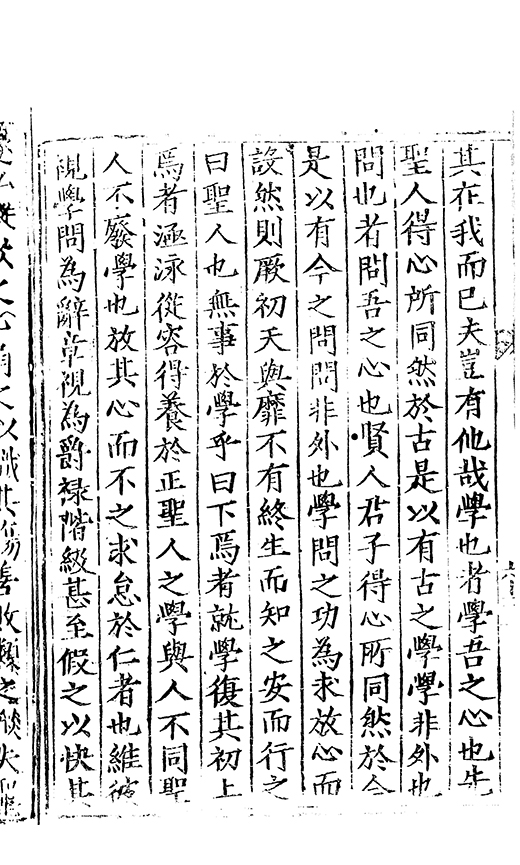 其在我而已夫豈有他哉學也者學吾之心也先
聖人得心所同然於古是以有古之學學非外也
問也者問吾之心也賢人君子得心所同然於今
是以有今之問問非外也學問之功為求放心而
設然則厥初天與靡不有終生而知之安而行之
曰聖人也無事於學乎曰下焉者就學復其初上
焉者涵泳從容得養於正聖人之學與人不同聖
人不廢學也放其心而不之求怠於仁者也維彼
視學問為辭章視為爵祿階級甚至假之以快其